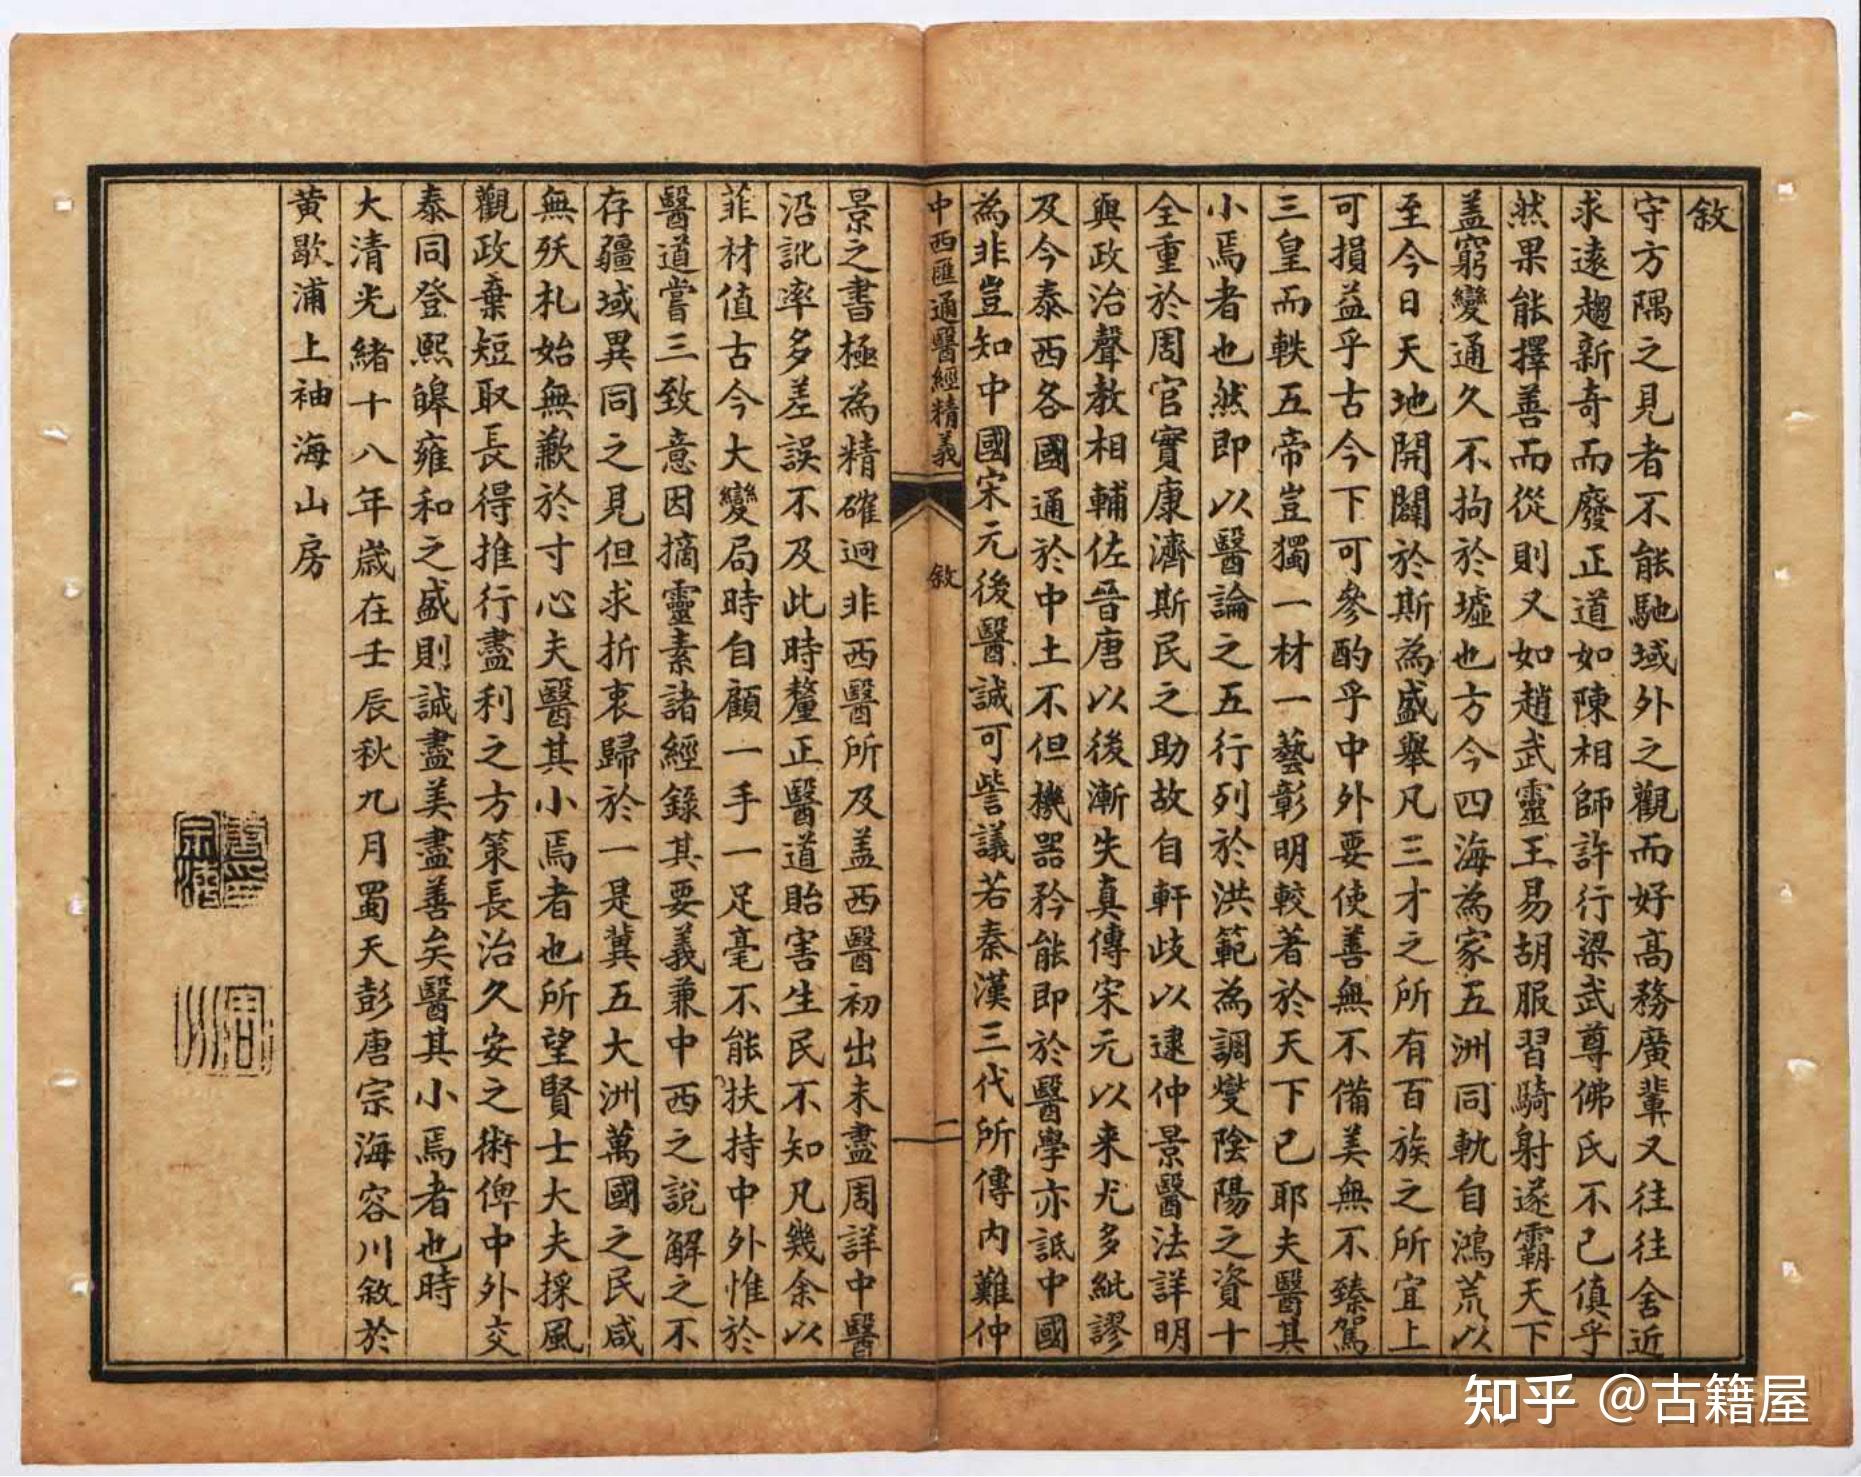 敘
守方隅之見者不能馳域外之觀而好高務廣輩又往往舍近
求遠趨新奇而廢正道如陳相師許行梁武尊佛氏不已傎乎
然果能擇善而從則又如趙武靈王易胡服習騎射遂霸天下
蓋窮變通久不拘於墟也方今四海為家五洲同軌自鴻荒以
至今日天地開闢於斯為盛舉凡三才之所有百族之所宜上
可損益乎古今下可參酌乎中外要使善無不備美無不臻駕
三皇而軼五帝豈獨一材一藝彰明較著於天下已耶夫醫其
小焉者也然即以醫論之五行列於洪範為調燮陰陽之資十
全重於周官實康濟斯民之助故自軒歧以逮仲景醫法詳明
與政治聲教相輔佐晉唐以後漸失真傳宋元以来尤多紕謬
及今泰西各國通於中土不但機器矜能即於醫學亦詆中國
為非豈知中國宋元後醫誠可訾議若秦漢三代所傳內難仲
中西匯通醫經精義
敘
一
景之書極為精確迥非西醫所及盖西醫初出未盡周詳中醫
沿訛率多差誤不及此時釐正醫道貽害生民不知凡幾余以
菲材值古今大變局時自顧一手一足毫不能扶持中外惟於
醫道嘗三致意因摘靈素諸經錄其要義兼中西之說解之不
存疆域異同之見但求折衷歸於一是冀五大洲萬國之民咸
無殀札始無歉於寸心夫醫其小焉者也所望賢士大夫採風
觀政棄短取長得推行盡利之方策長治久安之術俾中外交
泰同登熙皞雍和之盛則誠盡美盡善矣醫其小焉者也時
大清光緒十八年歲在壬辰秋九月蜀天彭唐宗海容川敘於
黄歇浦上袖海山房
知乎 @古籍屋